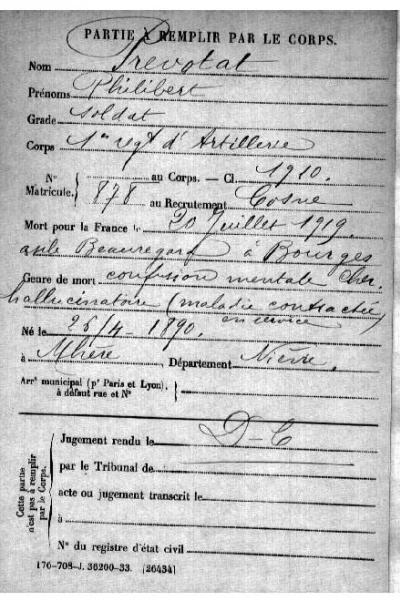 PARTIE À REMPLIR PAR LE CORPS.
Nom Prevotat
Prénoms Philibert
Grade soldat
Corps 1er régt d'Artillerie
N° Matricule. { au Corps. — Cl. 1910.
878 au Recrutement Cosne
Mort pour la France le 20 Juillet 1919.
asile Beauregard à Bourges
Genre de mort confusion mentale Cher.
hallucinatoire (maladie contractée
en service)
Né le 26/4 - 1890.
à Mhère, Département Nièvre.
Arrt municipal (pr Paris et Lyon),
à défaut rue et N° {
Cette partie
n'est pas à remplir
par le Corps.
Jugement rendu le D-C
par le Tribunal de
acte ou jugement transcrit le
à
N° du registre d'état civil
176-708-J. 36200-33. [26434]